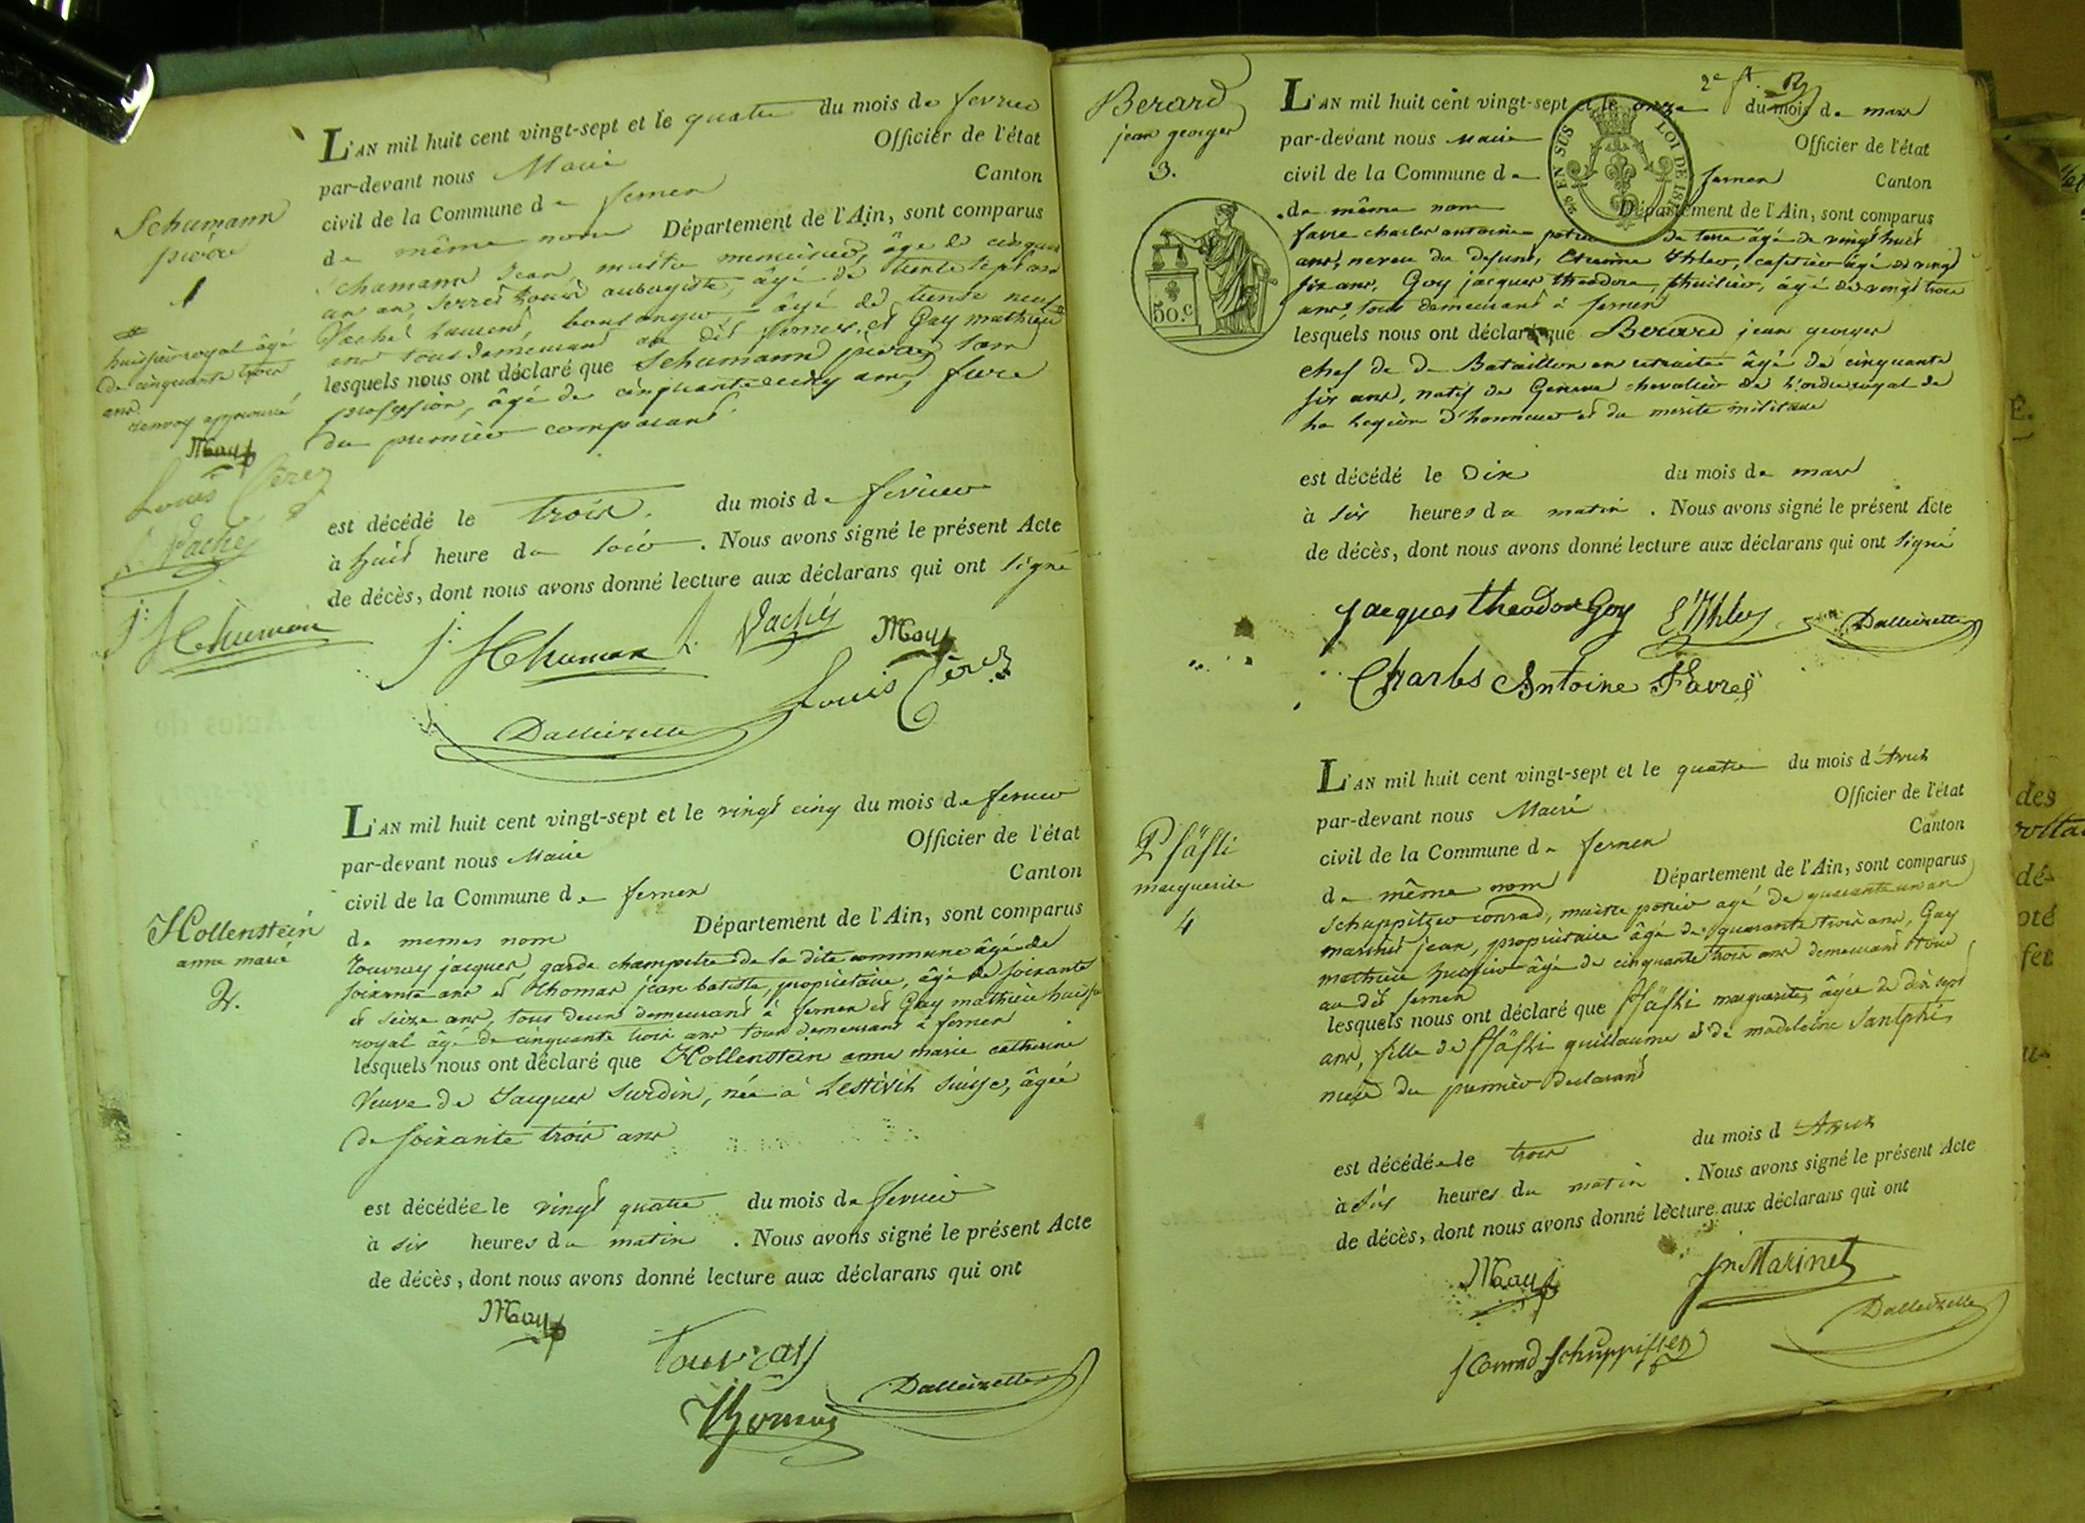 L'AN mil huit cent vingt-sept et le quatre du mois de fevrier
par-devant nous Maire Officier de l'état
civil de la Commune de ferney Canton
de même nom Département de l'Ain, sont comparus
Schumann
pierre
1
Schamann Jean, maitre menuisier, âgé de cinquante
un an, Serres Louis aubergiste, âgé de trente sept ans
Vaché Laurent, boulanger, âgé de trente neuf
ans tous demeurant au dit ferney, et Gay mathieu #
lesquels nous ont déclaré que Schumann pierre, sans
profession, âgé de cinquante cinq ans, frere
du premier comparant
#
huissier royal âgé
de cinquante trois
ans.
renvoy approuvé
Gay
Louis Serres
L. Vaché
J: Schuman
est décédé le trois. du mois de fevrier
à huit heure du soir. Nous avons signé le présent Acte
de décès, dont nous avons donné lecture aux déclarans qui ont signé
J: Schuman L. Vaché Gay
Louis Serres
Dalleizette
L'AN mil huit cent vingt-sept et le vingt cinq du mois de fevrier
par-devant nous Maire Officier de l'état
civil de la Commune de ferney Canton
de memes nom Département de l'Ain, sont comparus
Hollenstein
anne marie
2.
Touvray jacques, garde champetre de la dite commune âgé de
soixante ans et Thomas jean batiste, propriétaire, âgé de soixante
et seize ans, tous deux demeurant à ferney et Gay mathieu huissier
royal âgé de cinquante trois ans tous demeurant à ferney
lesquels nous ont déclaré que Hollenstein anne marie catherine
Veuve de Jacques Surdin, née à Suisse, âgée
de soixante trois ans
est décédée le vingt quatre du mois de fevrier
à six heures du matin. Nous avons signé le présent Acte
de décès, dont nous avons donné lecture aux déclarans qui ont
Gay
Touvray
Thomas Dalleizette
2e f.
Berard
jean georges
3.
L'AN mil huit cent vingt-sept et le onze du mois de mars
par-devant nous Maire Officier de l'état
civil de la Commune de ferney Canton
de même nom Département de l'Ain, sont comparus
25 EN SUS LOI DE 1816
50.C
favre charles antoine potier de terre âgé de vingt huit
ans, neveu du defunt, Etienne Ithler, cafetier âgé de vingt
six ans, Goy jacques theodore, âgé de vingt trois
ans, tous demeurant à ferney
lesquels nous ont déclaré que Berard jean georges
chef de de Bataillon en retraite âgé de cinquante
six ans, natif de Geneve chevalier de l'ordre royal de
la Legion d'honneur et du merite militaire
est décédé le Dix du mois de mars
à six heures du matin. Nous avons signé le présent Acte
de décès, dont nous avons donné lecture aux déclarans qui ont signé
Jacques theodore Goy E. Ithler Dalleizette
Charles Antoine Favre
L'AN mil huit cent vingt-sept et le quatre du mois d'Avril
par-devant nous Maire Officier de l'état
civil de la Commune de ferney Canton
de même nom Département de l'Ain, sont comparus
Pfäfli
marguerite
4
Schuppitzer conrad, maitre potier agé de quarante un an
marinet jean, propriétaire âgé de quarante trois ans, Gay
mathieu huissier âgé de cinquante trois ans demeurant tous
au dit ferney
lesquels nous ont déclaré que Pfäfli marguerite, âgée de dix sept
ans, fille de Pfäfli guillaume et de madeleine
niece du premier declarant
est décédée le trois du mois d'Avril
à six heures du matin. Nous avons signé le présent Acte
de décès, dont nous avons donné lecture aux déclarans qui ont
Gay Jn Marinet
Dalleizette
Conrad Schuppisser